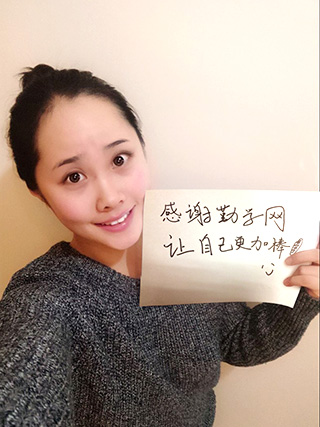 感谢勤学网
让自己更加棒!